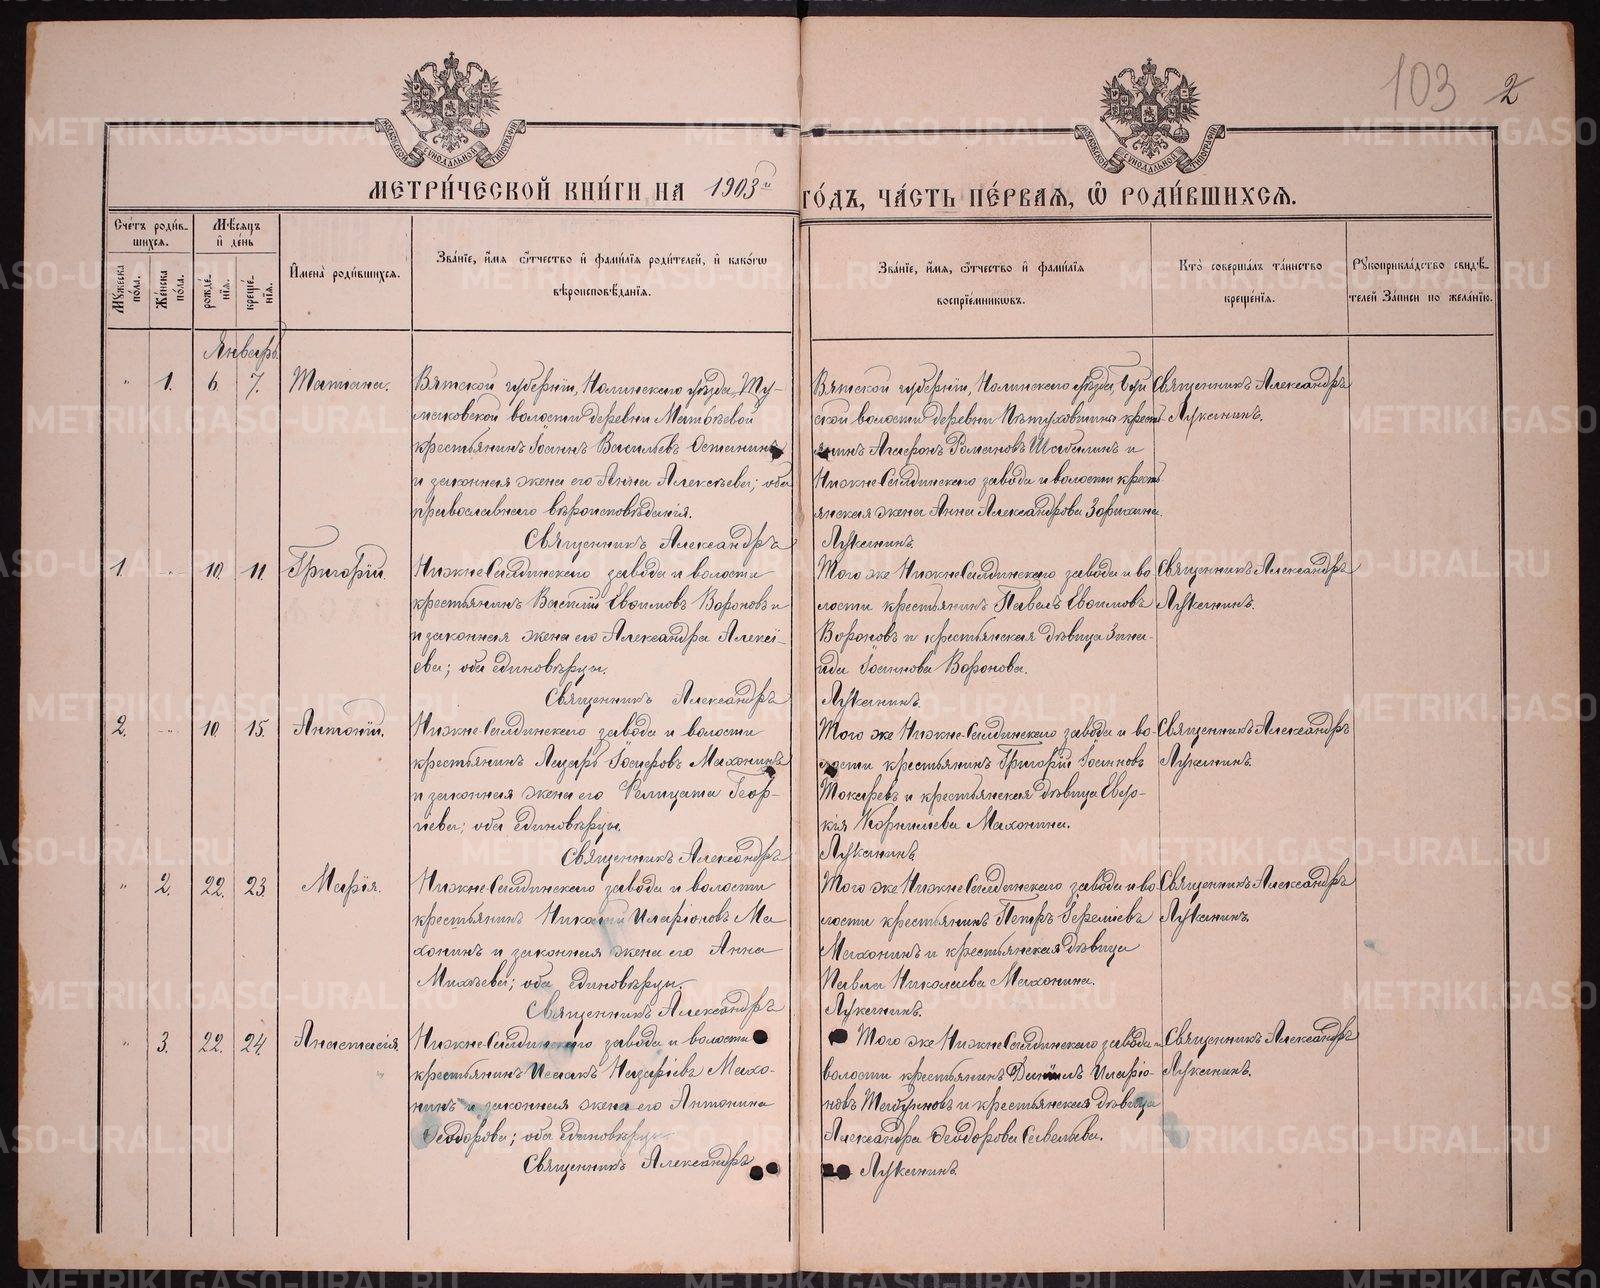 103 2
МОСКОВСКОЙ СУНОДАЛЬНОЙ ТИПОГРАФІИ
МОСКОВСКОЙ СУНОДАЛЬНОЙ ТИПОГРАФІИ
МЕТРИ́ЧЕСКОЙ КНИ́ГИ НА 1903й ГО́ДЪ, ЧА́СТЬ ПЕ́РВАЯ, Ѡ҆ РОДИ́ВШИХСЯ.
Сче́тъ роди́в-
шихся.
Мꙋ́жеска по́ла.
Же́нска по́ла.
Мѣ́сяцъ
и҆ де́нь
рожде́-
нїя.
креще́-
нїя.
И҆мена̀ роди́вшихся.
Зва́нїе, и҆́мя, ѻ҆́тчество и҆ фамѝлїя роди́телей, и҆ како́гѡ
вѣроисповѣ́данїя.
Зва́нїе, и҆́мя, ѻ҆́тчество и҆ фамѝлїя
воспрїе́мниковъ.
Кто̀ соверша́лъ та́инство
креще́нїя.
Рꙋкоприкла́дство свидѣ́-
телей За́писи по жела́нїю.
Январь.
" 1. 6. 7. Татіана.
Вятской губерніи, Нолинскаго уѣзда, Ту-
маковской волости деревни Матвѣевой
крестьянинъ Іоаннъ Васильевъ Останинъ
и законная жена его Анна Алексѣева; оба
православнаго вѣроисповѣданія.
Священникъ Александръ
Вятской губерніи, Нолинскаго уѣзда,
ской волости деревни Пѣтуховщины крест-
янинъ Агафонъ Романовъ Шабалинъ и
Нижне-Салдинскаго завода и волости крест-
янская жена Анна Александрова Зорихина.
Луканинъ.
Священникъ Александръ
Луканинъ.
1. " 10. 11. Григорій.
Нижне-Салдинскаго завода и волости
крестьянинъ Василій Евѳимовъ Вороновъ и
и законная жена его Александра Алексі-
ева; оба единовѣрцы.
Священникъ Александръ
Того же Нижне-Салдинскаго завода и во-
лости крестьянинъ Павелъ Евѳимовъ
Вороновъ и крестьянская дѣвица Зина-
ида Іоаннова Воронова.
Луканинъ.
Священникъ Александръ
Луканинъ.
2. " 10. 15. Антоній.
Нижне-Салдинскаго завода и волости
крестьянинъ Лазарь Іосифовъ Махонинъ
и законная жена его Фелицата Геор-
гіева; оба единовѣрцы.
Священникъ Александръ
Того же Нижне-Салдинскаго завода и во-
лости крестьянинъ Григорій Іоанновъ
Токаревъ и крестьянская дѣвица Евдо-
кія Корнилиева Махонина.
Луканинъ.
Священникъ Александръ
Луканинъ.
" 2. 22. 23 Марія.
Нижне-Салдинскаго завода и волости
крестьянинъ Николай Иларіоновъ Ма-
хонинъ и законная жена его Анна
Михѣева; оба единовѣрцы.
Священникъ Александръ
Того же Нижне-Салдинскаго завода и во-
лости крестьянинъ Петръ Іереміевъ
Махонинъ и крестьянская дѣвица
Павла Николаева Махонина.
Луканинъ.
Священникъ Александръ
Луканинъ.
" 3. 22. 24. Анастасія.
Нижне-Салдинскаго завода и волости
крестьянинъ Исаакъ Назаріевъ Махо-
нинъ и законная жена его Антонина
Ѳеодорова; оба единовѣрцы.
Священникъ Александръ
Того же Нижне-Салдинскаго завода и
волости крестьянинъ Даніилъ Иларіо-
новъ и крестьянская дѣвица
Александра Ѳеодорова Савельева.
Луканинъ.
Священникъ Александръ
Луканинъ.
METRIKI.GASO-URAL.RU